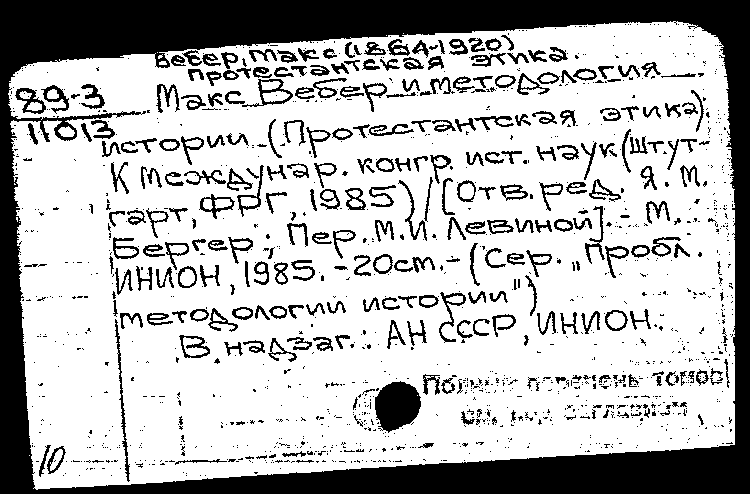 Вебер, Макс (1864-1920)
протестантская этика.
89-3 Макс Вебер и методология
11013
истории (Протестантская этика).
К междунар. конгр. ист. наук (Штут-
гарт, ФРГ, 1985) / [Отв. ред. Я. М.
Бергер ; Пер. М.И. Левиной]. - М.
ИНИОН, 1985. - 20 см. - (Сер. „Пробл.
методологии истории")
В надзаг.: АН СССР, ИНИОН.
Полный перечень томов
см. под заглавием
10